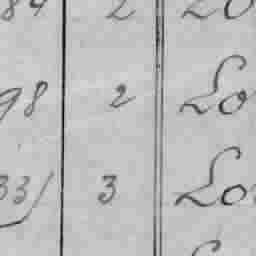 84 2 Lo
98 2 Lo
33/ 3 Lo